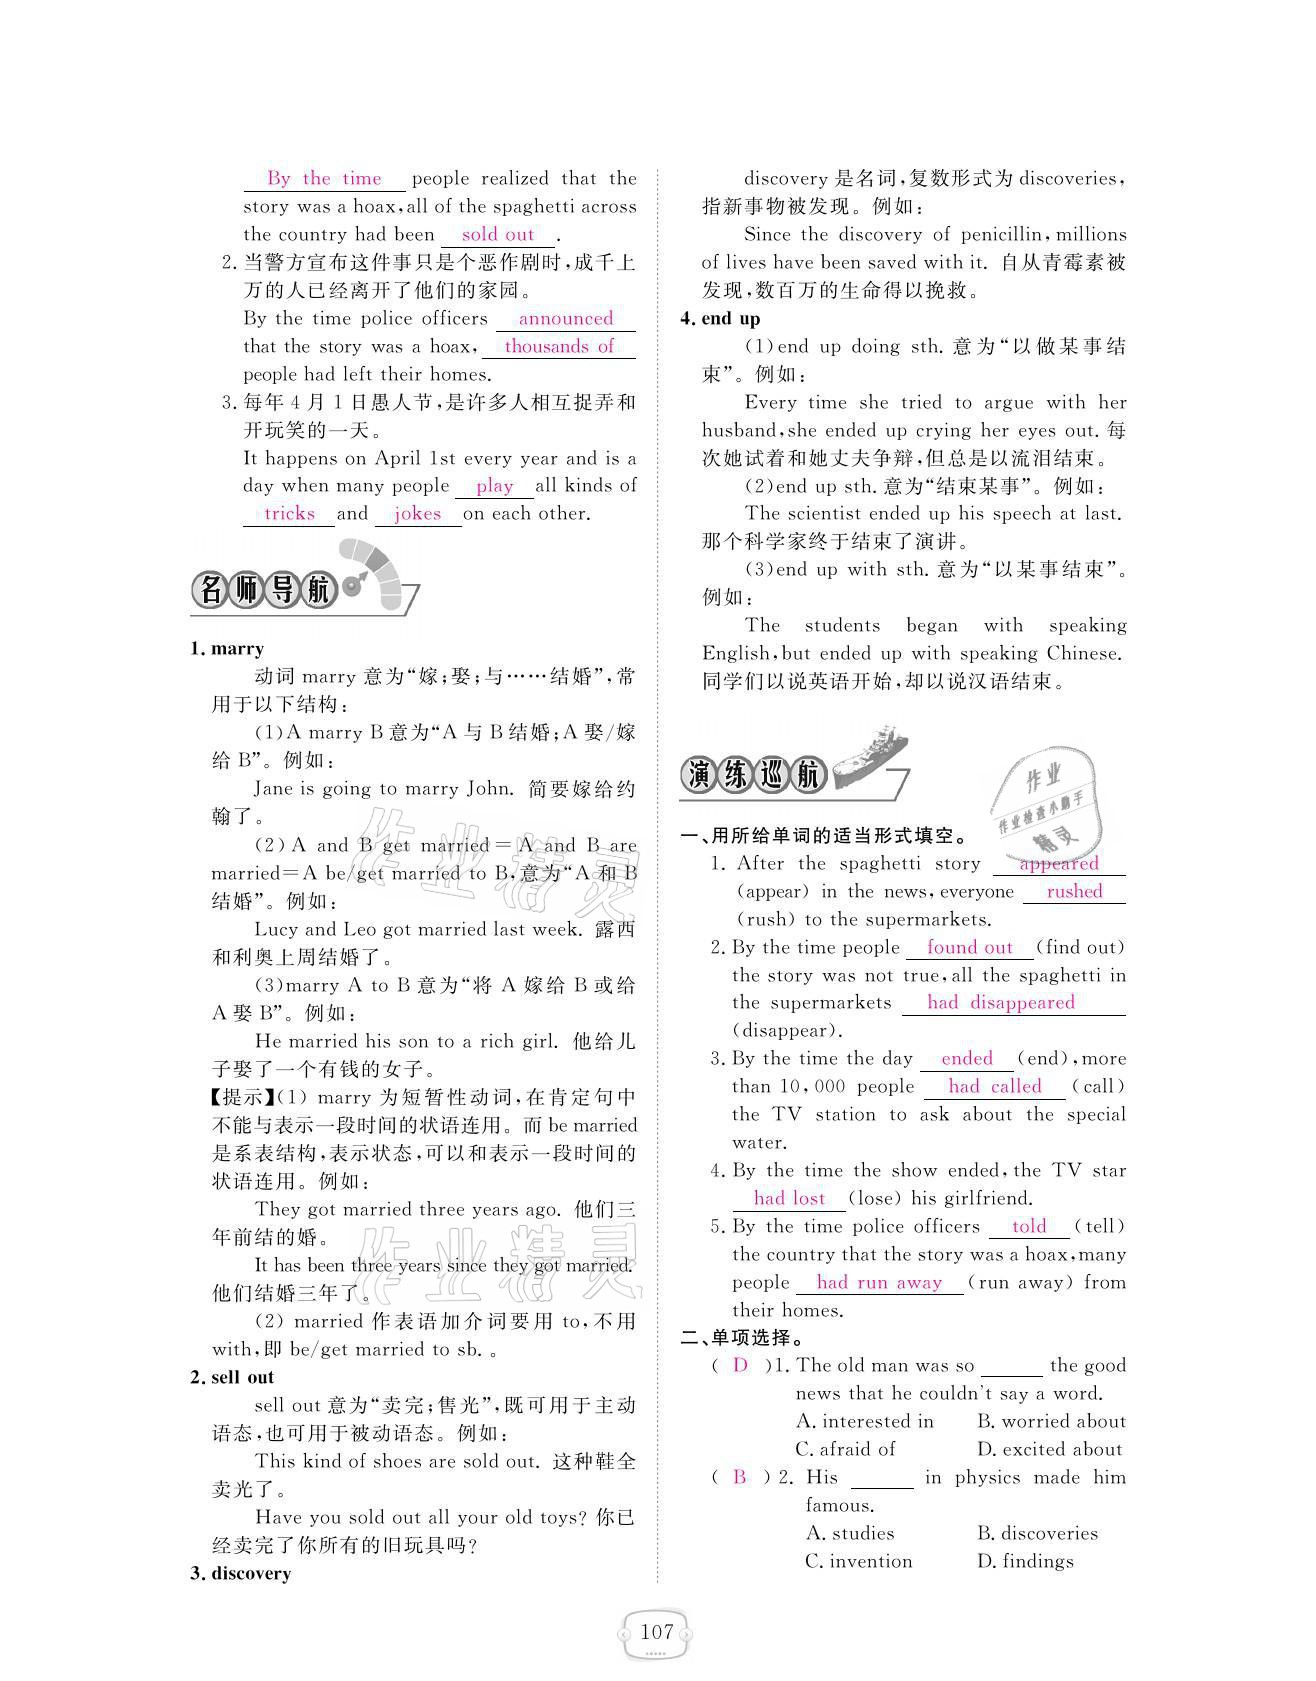 By the time people realized that the
story was a hoax, all of the spaghetti across
the country had been sold out .
2. 当警方宣布这件事只是个恶作剧时,成千上
万的人已经离开了他们的家园。
By the time police officers announced
that the story was a hoax, thousands of
people had left their homes.
3. 每年 4 月 1 日愚人节,是许多人相互捉弄和
开玩笑的一天。
It happens on April 1st every year and is a
day when many people play all kinds of
tricks and jokes on each other.
名师导航
1. marry
动词 marry 意为“嫁;娶;与……结婚”,常
用于以下结构:
(1)A marry B意为“A 与 B结婚;A 娶/嫁
给 B”。例如:
Jane is going to marry John. 简要嫁给约
翰了。
(2) A and B get married = A and B are
married=A be/get married to B,意为“A 和 B
结婚”。例如:
Lucy and Leo got married last week. 露西
和利奥上周结婚了。
(3)marry A to B 意为“将 A 嫁给 B 或给
A 娶 B”。例如:
He married his son to a rich girl. 他给儿
子娶了一个有钱的女子。
【提示】(1) marry 为短暂性动词,在肯定句中
不能与表示一段时间的状语连用。而 be married
是系表结构,表示状态,可以和表示一段时间的
状语连用。例如:
They got married three years ago. 他们三
年前结的婚。
It has been three years since they got married.
他们结婚三年了。
(2) married 作表语加介词要用 to,不用
with,即 be/get married to sb.。
2. sell out
sell out 意为“卖完;售光”,既可用于主动
语态,也可用于被动语态。例如:
This kind of shoes are sold out. 这种鞋全
卖光了。
Have you sold out all your old toys? 你已
经卖完了你所有的旧玩具吗?
3. discovery
discovery 是名词,复数形式为 discoveries,
指新事物被发现。例如:
Since the discovery of penicillin, millions
of lives have been saved with it. 自从青霉素被
发现,数百万的生命得以挽救。
4. end up
(1)end up doing sth. 意为“以做某事结
束”。例如:
Every time she tried to argue with her
husband, she ended up crying her eyes out. 每
次她试着和她丈夫争辩,但总是以流泪结束。
(2)end up sth. 意为“结束某事”。例如:
The scientist ended up his speech at last.
那个科学家终于结束了演讲。
(3)end up with sth. 意为“以某事结束”。
例如:
The students began with speaking
English, but ended up with speaking Chinese.
同学们以说英语开始,却以说汉语结束。
演练巡航
作业
作业检查小助手
精灵
一、用所给单词的适当形式填空。
1. After the spaghetti story appeared
(appear) in the news, everyone rushed
(rush) to the supermarkets.
2. By the time people found out (find out)
the story was not true, all the spaghetti in
the supermarkets had disappeared
(disappear).
3. By the time the day ended (end), more
than 10,000 people had called (call)
the TV station to ask about the special
water.
4. By the time the show ended, the TV star
had lost (lose) his girlfriend.
5. By the time police officers told (tell)
the country that the story was a hoax, many
people had run away (run away) from
their homes.
二、单项选择。
( D )1. The old man was so ______ the good
news that he couldn't say a word.
A. interested in B. worried about
C. afraid of D. excited about
( B )2. His ______ in physics made him
famous.
A. studies B. discoveries
C. invention D. findings
作业精灵
作业精灵
107